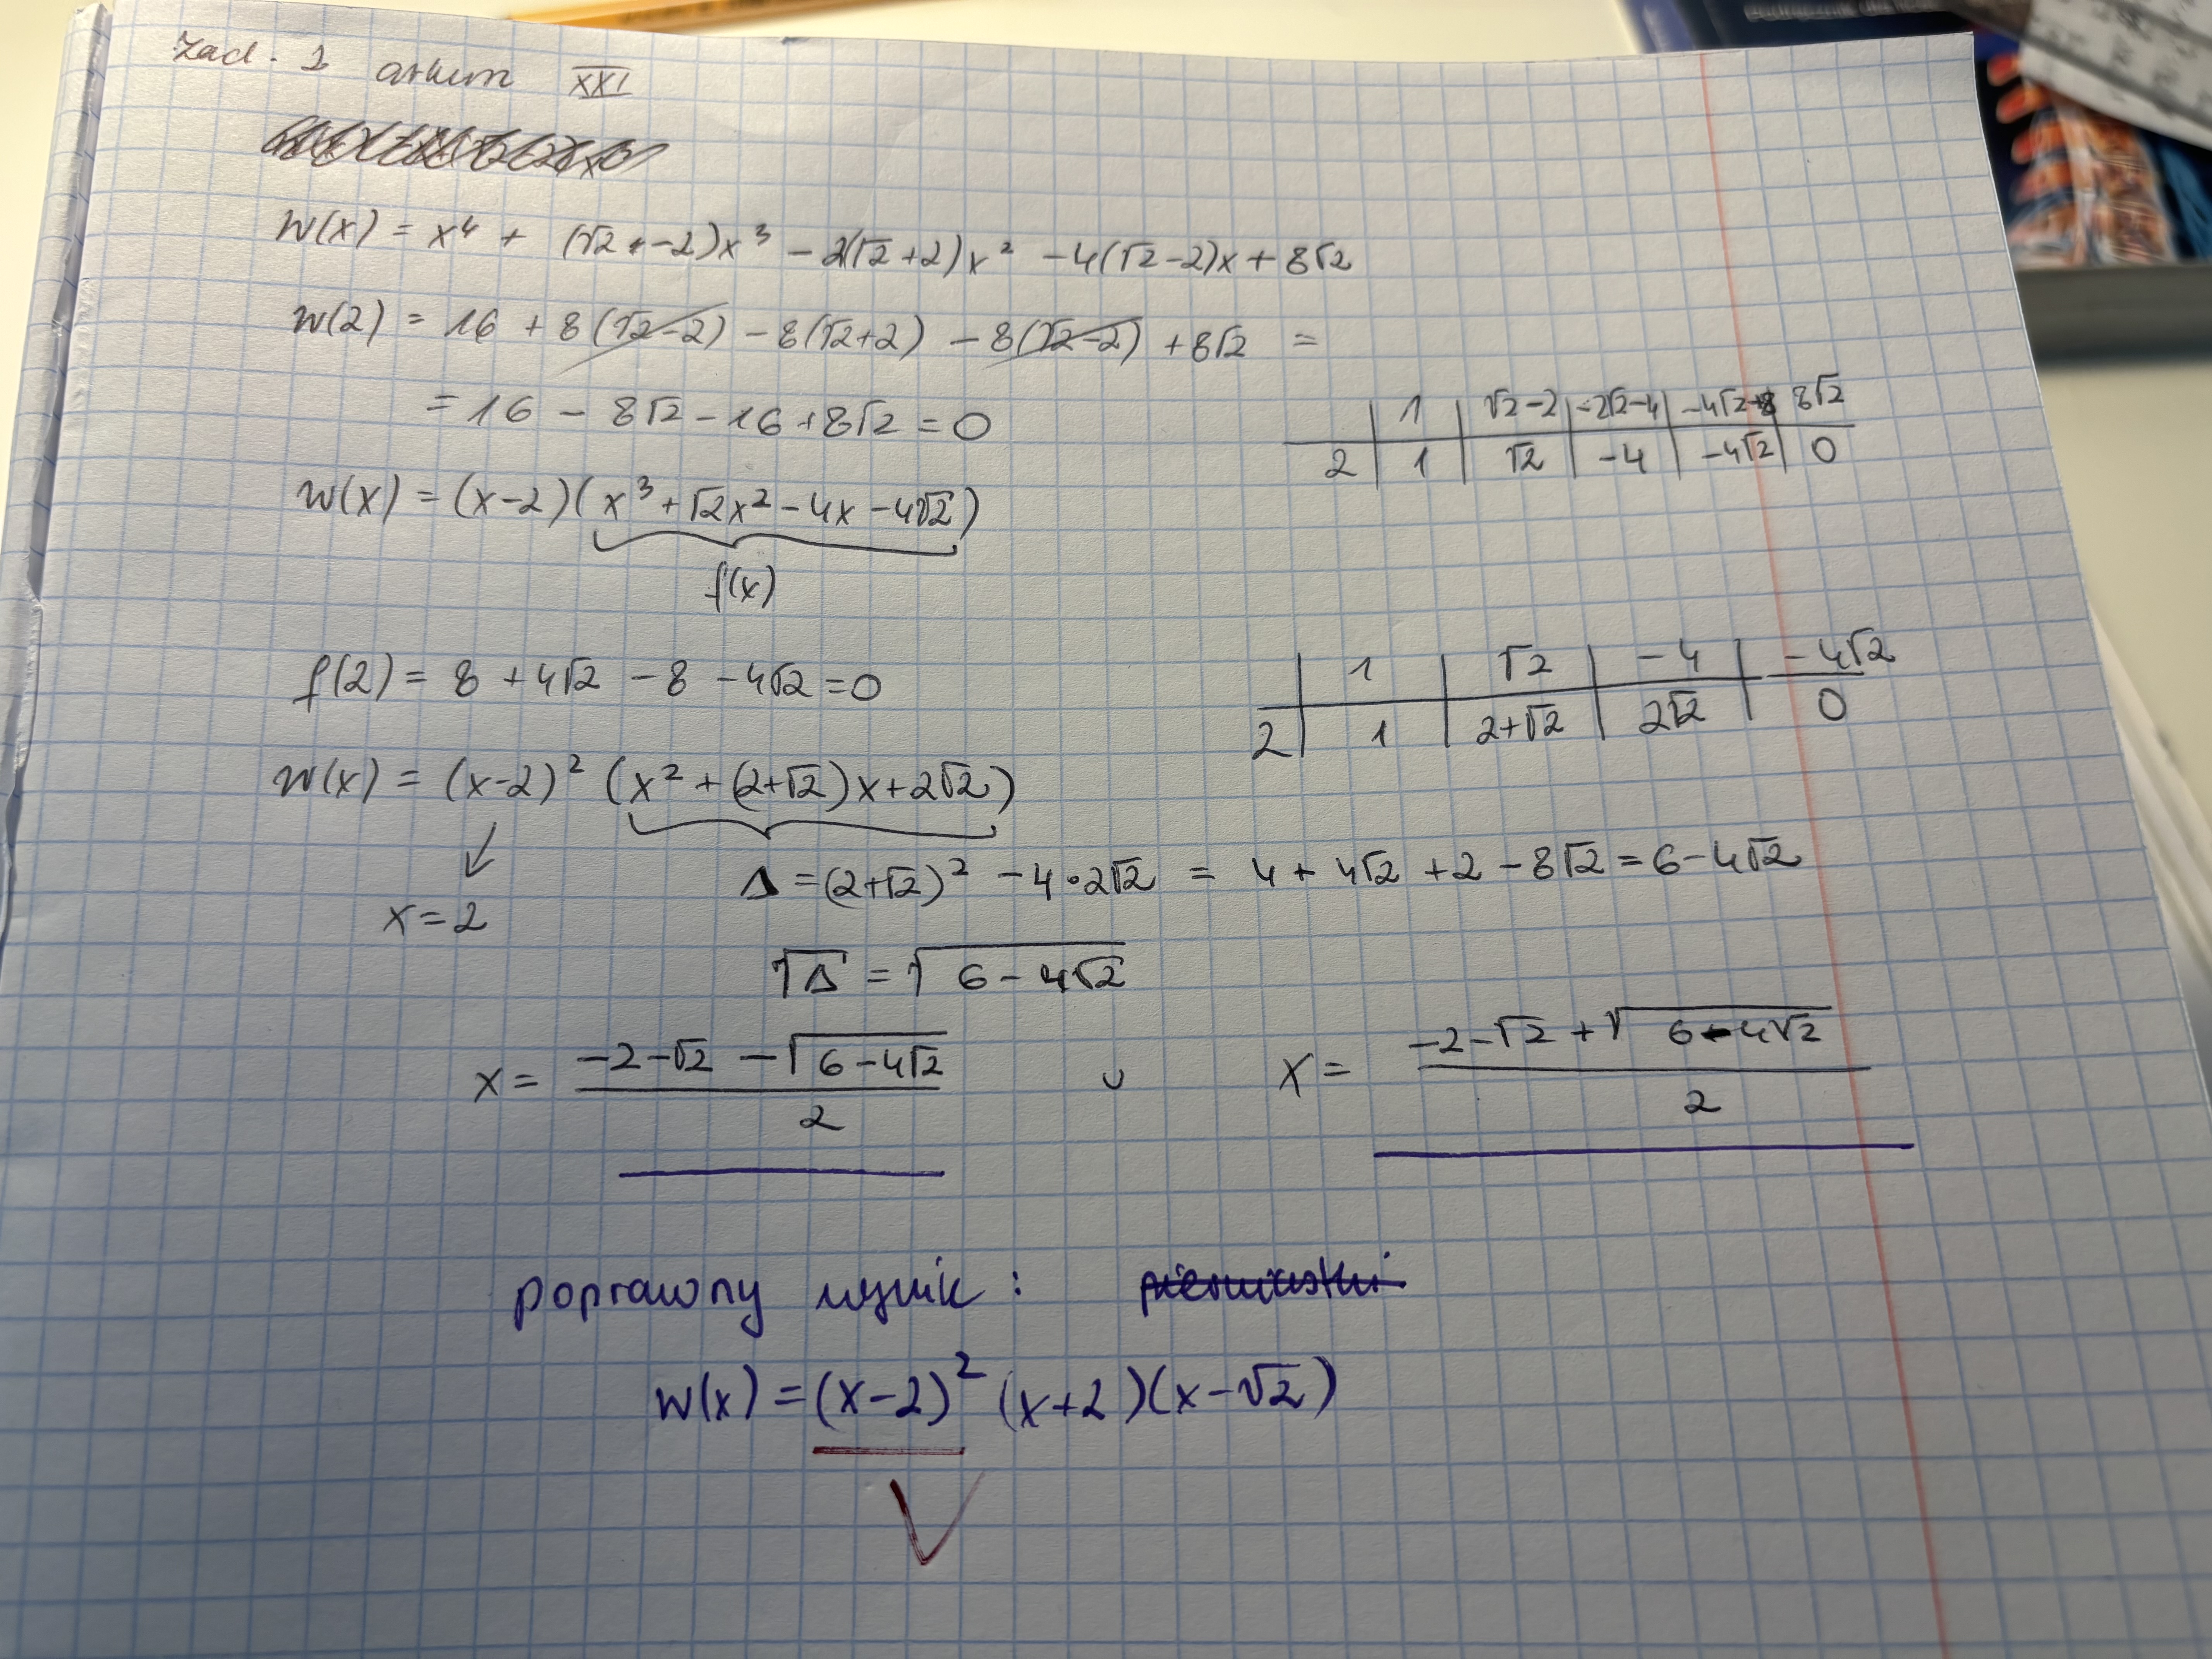 Zad. 1 arkusz XXI
W(x) = x⁴ + (√2 - 2)x³ - 2(√2+2)x² - 4(√2-2)x + 8√2
W(2) = 16 + 8(√2-2) - 8(√2+2) - 8(√2-2) + 8√2 =
= 16 - 8√2 - 16 + 8√2 = 0
1 | √2-2 | -2√2-4 | -4√2+8 | 8√2
2 | 1 | √2 | -4 | -4√2 | 0
W(x) = (x-2)(x³ + √2x² - 4x - 4√2)
f(x)
f(2) = 8 + 4√2 - 8 - 4√2 = 0
1 | √2 | -4 | -4√2
2 | 1 | 2+√2 | 2√2 | 0
W(x) = (x-2)² (x² + (2+√2)x + 2√2)
Δ = (2+√2)² - 4·2√2 = 4 + 4√2 + 2 - 8√2 = 6 - 4√2
x = 2
√Δ = √(6 - 4√2)
x = (-2-√2 - √(6-4√2))/2 ∪ x = (-2-√2 + √(6-4√2))/2
poprawny wynik : pierwiastki
W(x) = (x-2)² (x+2)(x-√2)